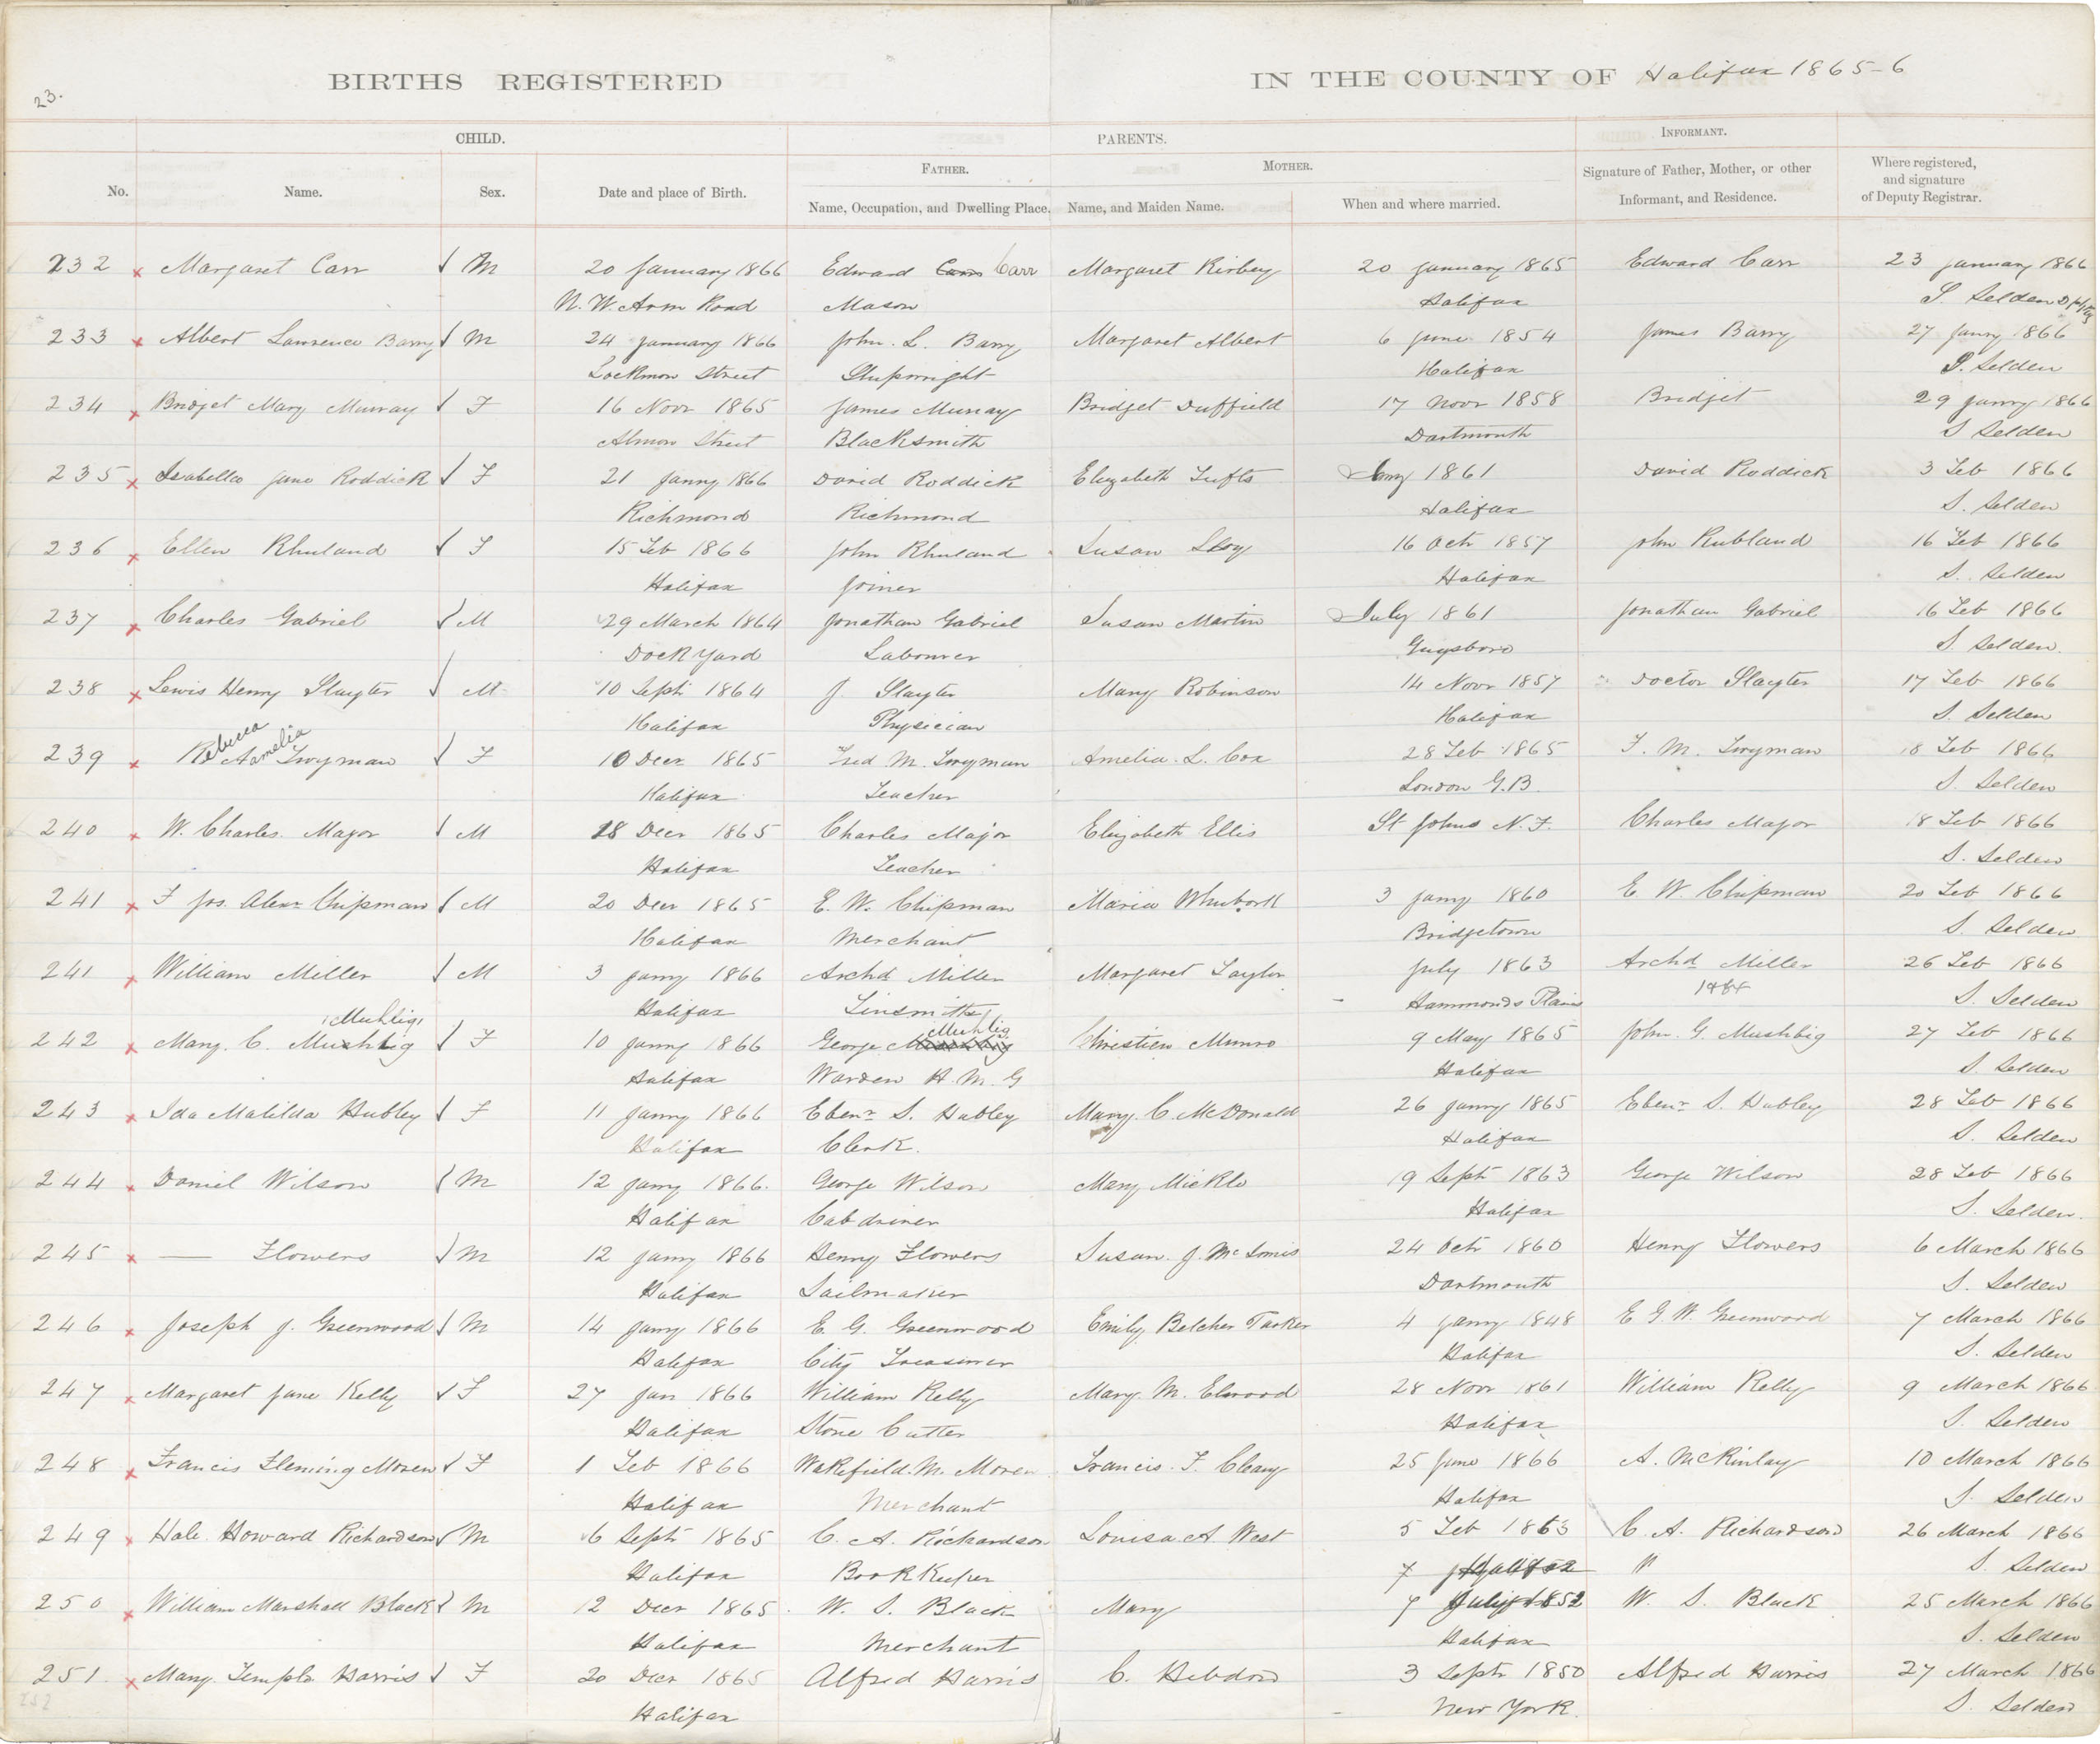 23.
BIRTHS REGISTERED IN THE COUNTY OF Halifax 1865-6
CHILD. PARENTS. INFORMANT.
FATHER. MOTHER.
No. Name. Sex. Date and place of Birth. Name, Occupation, and Dwelling Place. Name, and Maiden Name. When and where married. Signature of Father, Mother, or other Informant, and Residence. Where registered, and signature of Deputy Registrar.
232 Margaret Carr M 20 January 1866 Edward Carr Margaret Kirbey 20 January 1865 Edward Carr 23 January 1866
N. W. Arm Road Mason Halifax S Selden
233 Albert Lawrence Barry M 24 January 1866 John. L. Barry Margaret Albert 6 June 1854 James Barry 27 Janry 1866
Lockmon Street Shipwright Halifax S. Selden
234 Bridget Mary Murray F 16 Novr 1865 James Murray Bridget Duffield 17 Novr 1858 Bridget 29 Janry 1866
Almon Street Blacksmith Dartmouth S Selden
235 Isabella Jane Roddick F 21 Janry 1866 David Roddick Elizabeth Tufts 1861 David Roddick 3 Feb 1866
Richmond Richmond Halifax S. Selden
236 Ellen Rhuland F 15 Feb 1866 John Rhuland Susan 16 Octr 1857 John Rubland 16 Feb 1866
Halifax Joiner Halifax S. Selden
237 Charles Gabriel M 29 March 1864 Jonathan Gabriel Susan Martin July 1861 Jonathan Gabriel 16 Feb 1866
Dock Yard Labourer Guysboro S. Selden.
238 Lewis Henry Slayter M 10 Sept 1864 J. Slayter Mary Robinson 14 Novr 1857 Doctor Slayter 17 Feb 1866
Halifax Physician Halifax S. Selden
239 Rebecca Amelia Twyman F 10 Decr 1865 Fred M. Twyman Amelia. L. Cox 28 Feb 1865 F. M. Twyman 18 Feb 1866
Halifax Teacher London G.B. S. Selden
240 W. Charles. Major M 18 Decr 1865 Charles Major Elizabeth Ellis St Johns N. F. Charles Major 18 Feb 1866
Halifax Teacher S. Selden
241 F Jos. Alexr Chipman M 20 Decr 1865 E. W. Chipman Maria 3 Janry 1860 E. W. Chipman 20 Feb 1866
Halifax Merchant Bridgetown S. Selden
241 William Miller M 3 Janry 1866 Archd Miller Margaret Taylor July 1863 Archd Miller 26 Feb 1866
Halifax Tinsmith Hammonds Plains S. Selden
Muhlig Muhlig
242 Mary. C. Mushbig F 10 Janry 1866 George Christien Munro 9 May 1865 John. G. Mushbig 27 Feb 1866
Halifax Warden H. M. G Halifax S. Selden
243 Ida Matilda Hubley F 11 Janry 1866 Ebenr S. Hubley Mary. C. McDonald 26 Janry 1865 Ebenr S. Hubley 28 Feb 1866
Halifax Clerk. Halifax S. Selden
244 Daniel Wilson M 12 Janry 1866. George Wilson Mary Mickle 9 Sept 1863 George Wilson 28 Feb 1866
Halifax Cab driver Halifax S. Selden.
245 — Flowers M 12 Janry 1866 Henry Flowers Susan. J. 24 Octr 1860 Henry Flowers 6 March 1866
Halifax Sailmaker Dartmouth S. Selden
246 Joseph J. Greenwood M 14 Janry 1866 E. G. Greenwood Emily Belcher Tarker 4 Janry 1848 E G. W. Greenwood 7 March 1866
Halifax City Treasurer Halifax S. Selden
247 Margaret Jane Kelly F 27 Jan 1866 William Kelly Mary M. Elwood 28 Novr 1861 William Kelly 9 March 1866
Halifax Stone Cutter Halifax S. Selden
248 Francis Fleming Moren F 1 Feb 1866 Wakefield. M. Moren Francis. F. Cleary 25 June 1866 A. McKinlay 10 March 1866
Halifax Merchant Halifax S. Selden
249 Hale. Howard Richardson M 6 Sept 1865 C. A. Richardson Louisa. A. West 5 Feb 1863 C. A. Richardson 26 March 1866
Halifax Book Keeper 7 Halifax " S. Selden
250 William Marshall Black M 12 Decr 1865. W. S. Black Mary 7 July 1852 W. S. Black 25 March 1866
Halifax Merchant Halifax S. Selden
251. Mary. Temple Harris F 20 Decr 1865 Alfred Harris C. Hebdon 3 Septr 1850 Alfred Harris 27 March 1866
252 Halifax New York. S. Selden